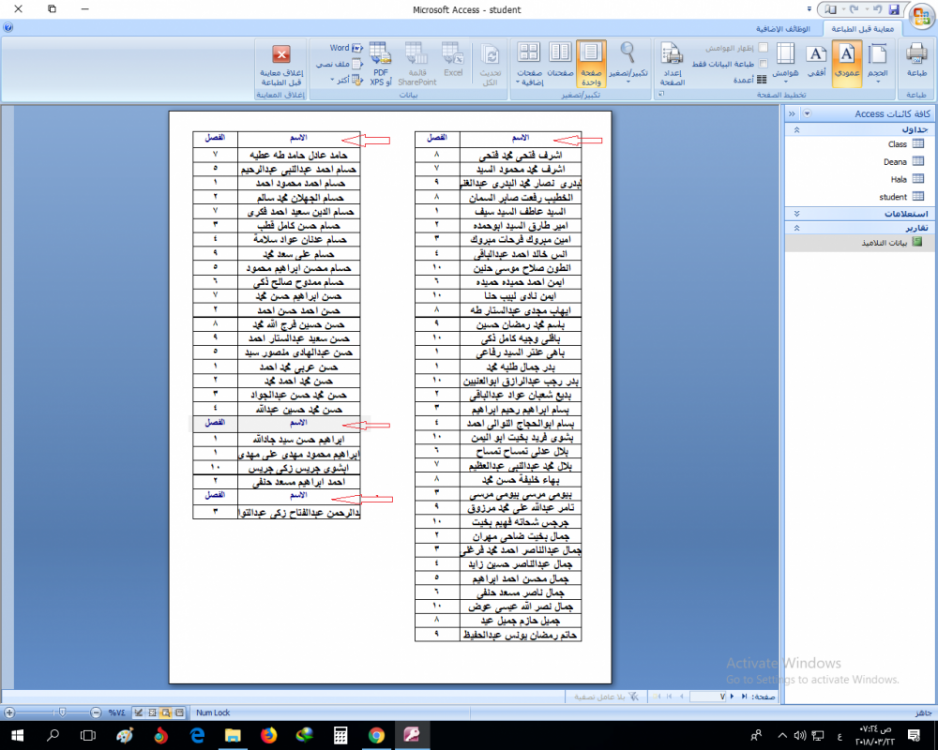 Microsoft Access - student
معاينة قبل الطباعة
الوظائف الإضافية
طباعة
الحجم
عمودي
أفقي
هوامش
إظهار الهوامش
طباعة البيانات فقط
أعمدة
إعداد الصفحة
تكبير/تصغير
صفحة واحدة
صفحتان
صفحات إضافية
تحديث الكل
Excel
قائمة SharePoint
PDF أو XPS
Word
ملف نصي
أكثر
إغلاق معاينة قبل الطباعة
طباعة
تخطيط الصفحة
تكبير/تصغير
بيانات
إغلاق المعاينة
كافة كائنات Access
جداول
Class
Deana
Hala
student
استعلامات
تقارير
بيانات التلاميذ
الاسم الفصل
اشرف فتحى محمد فتحى ٨
اشرف محمد محمود السيد ٧
البدرى نصار محمد البدرى عبدالغنى ٩
الخطيب رفعت صابر السمان ٨
السيد عاطف السيد سيف ١
امير طارق السيد ابوحمده ٢
امين مبروك فرحات مبروك ٣
انس خالد احمد عبدالباقى ٤
انطون صلاح موسى حنين ١٠
ايمن احمد حميده حميده ٦
ايمن نادى لبيب حنا ١٠
ايهاب مجدى عبدالستار طه ٨
باسم محمد رمضان حسين ٩
باقى وجيه كامل ذكى ١٠
باهى عنتر السيد رفاعى ١
بدر جمال طلبه محمد ١
بدر رجب عبدالرازق ابوالعنيين ١٠
بديع شعبان عواد عبدالباقى ٢
بسام ابراهيم رحيم ابراهيم ٣
بسام ابوالحجاج النوالى احمد ٤
بشوى فريد بخيت ابو اليمن ١٠
بلال عدلى تمساح تمساح ٦
بلال محمد عبدالنبى عبدالعظيم ٧
بهاء خليفة حسن محمد ٨
بيومى مرسى بيومى مرسى ٣
تامر عبدالله على محمد مرزوق ٩
جرجس شحاته فهيم بخيت ١٠
جمال بخيت ضاحى مهران ٢
جمال عبدالناصر احمد محمد فرغلى ٣
جمال عبدالناصر حسين زايد ٤
جمال محسن احمد ابراهيم ٥
جمال ناصر مسعد حنفى ٦
جمال نصر الله عيسى عوض ١٠
جميل حازم جميل عبد ٨
حاتم رمضان يونس عبدالحفيظ ٩
الاسم الفصل
حامد عادل حامد طه عطيه ٧
حسام احمد عبدالنبى عبدالرحيم ٥
حسام احمد محمود احمد ١
حسام الجهلان محمد سالم ٢
حسام الدين سعيد احمد فكرى ٧
حسام حسن كامل قطب ٣
حسام عدنان عواد سلامة ٤
حسام على سعد محمد ٩
حسام محسن ابراهيم محمود ٥
حسام ممدوح صالح ذكى ٦
حسن ابراهيم حسن محمد ٧
حسن احمد حسن احمد ٢
حسن حسين فرج الله محمد ٨
حسن سعيد عبدالستار احمد ٩
حسن عبدالهادى منصور سيد ٥
حسن عربى محمد احمد ١
حسن محمد احمد محمد ٢
حسن محمد حسن عبدالجواد ٣
حسن محمد حسين عبدالله ٤
الاسم الفصل
ابراهيم حسن سيد جادالله ١
ابراهيم محمود مهدى على مهدى ١
ابشوى جريس زكى جريس ١٠
احمد ابراهيم مسعد حنفى ٢
الاسم الفصل
دالرحمن عبدالفتاح زكى عبدالتوا ٣
Activate Windows
Go to Settings to activate Windows.
صفحة: ٧
بلا عامل تصفية
جاهز
Num Lock
%٧٤
٠٧:٢٤ ص
٢٠١٨/٠٣/٢٢
ع